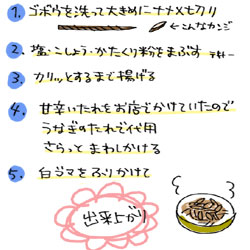 1. ゴボウを洗って大きめにナナメ切り
こんなカンジ
2. 塩・こしょう・かたくり粉をまぶす
3. カリッとするまで揚げる
4. 甘辛いたれをお店でかけていたので
うなぎのたれで代用
さらっとまわしかける
5. 白ゴマをふりかけて
出来上がり